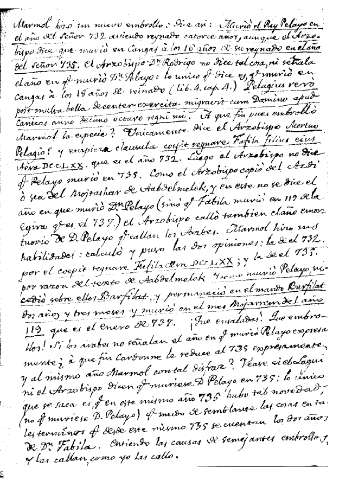 Marmol hizo un nuevo embrollo: dice así: Murió el Rey Pelayo en
el año del Señor 732 aviendo reynado catorce años, aunque el Arzo-
bispo dice que murió en Cangas à los 16 años de su reynado en el año
del señor 735. el Arzobispo Dn Rodrigo no dice tal cosa, ni señala
el año en qe murió Dn Pelayo: lo unico qe dice es, qe murió en
Cangas à los 18 años de reinado (lib. 4. cap. 4.) Pelagius vero
post multa bella, decenter exercita migravit cum Domino apud
Canicas anno decimo octavo regni sui. A que fin pues embrolló
Marmol la especie? Unicamente dice el Arzobispo Mortuo
Pelagio? y empieza clausula coepit regnare Fafila filius eius
Æra DCCLXX. que es el año 732. Luego el Arzobispo no dice
qe Pelayo murió en 735. Como el Arzobispo copió del
ó sea del de Aabdelmelek, y en esto no se dice el
año en que murió Dn Pelayo (sino qe Fabila murió en 119 de la
egira qe es el 737.) el Arzobispo calló tambien el año emor-
tuorio de D. Pelayo qe callan los Arabes. Marmol hizo sus
habilidades: calculó y puso las dos opiniones; la de el 732.
por el coepit regnare Fafila Æra DCCLXX; y la de el 735.
por razon del texto de Aabdelmelek y murió Pelayo su-
cedió sobre ellos Barfilat, y permaneció en el mando Barfilat
dos años y tres meses y murió en el mes del año
119 que es el Enero de 737. ¡Que ensaladas! Que embro-
llos! Si los arabes no señalan el año en qe murió Pelayo expresa-
mente; à que fin Cardonne la reduce al 735 expresamente,
y al mismo año Marmol con tal disfraz? Vean si el Laqui
ni el Arzobispo dicen qe muriese D. Pelayo en 735: lo unico
que se saca es, qe en este mismo año 735 hubo tal novedad,
(no qe muriese D. Pelayo) qe mudó de semblante las cosas en ta-
les terminos qe desde este mismo 735 se cuentan los dos años
de Dn Fabila. Entiendo las causas de semejantes embrollos,
y las callan, como yo las callo.